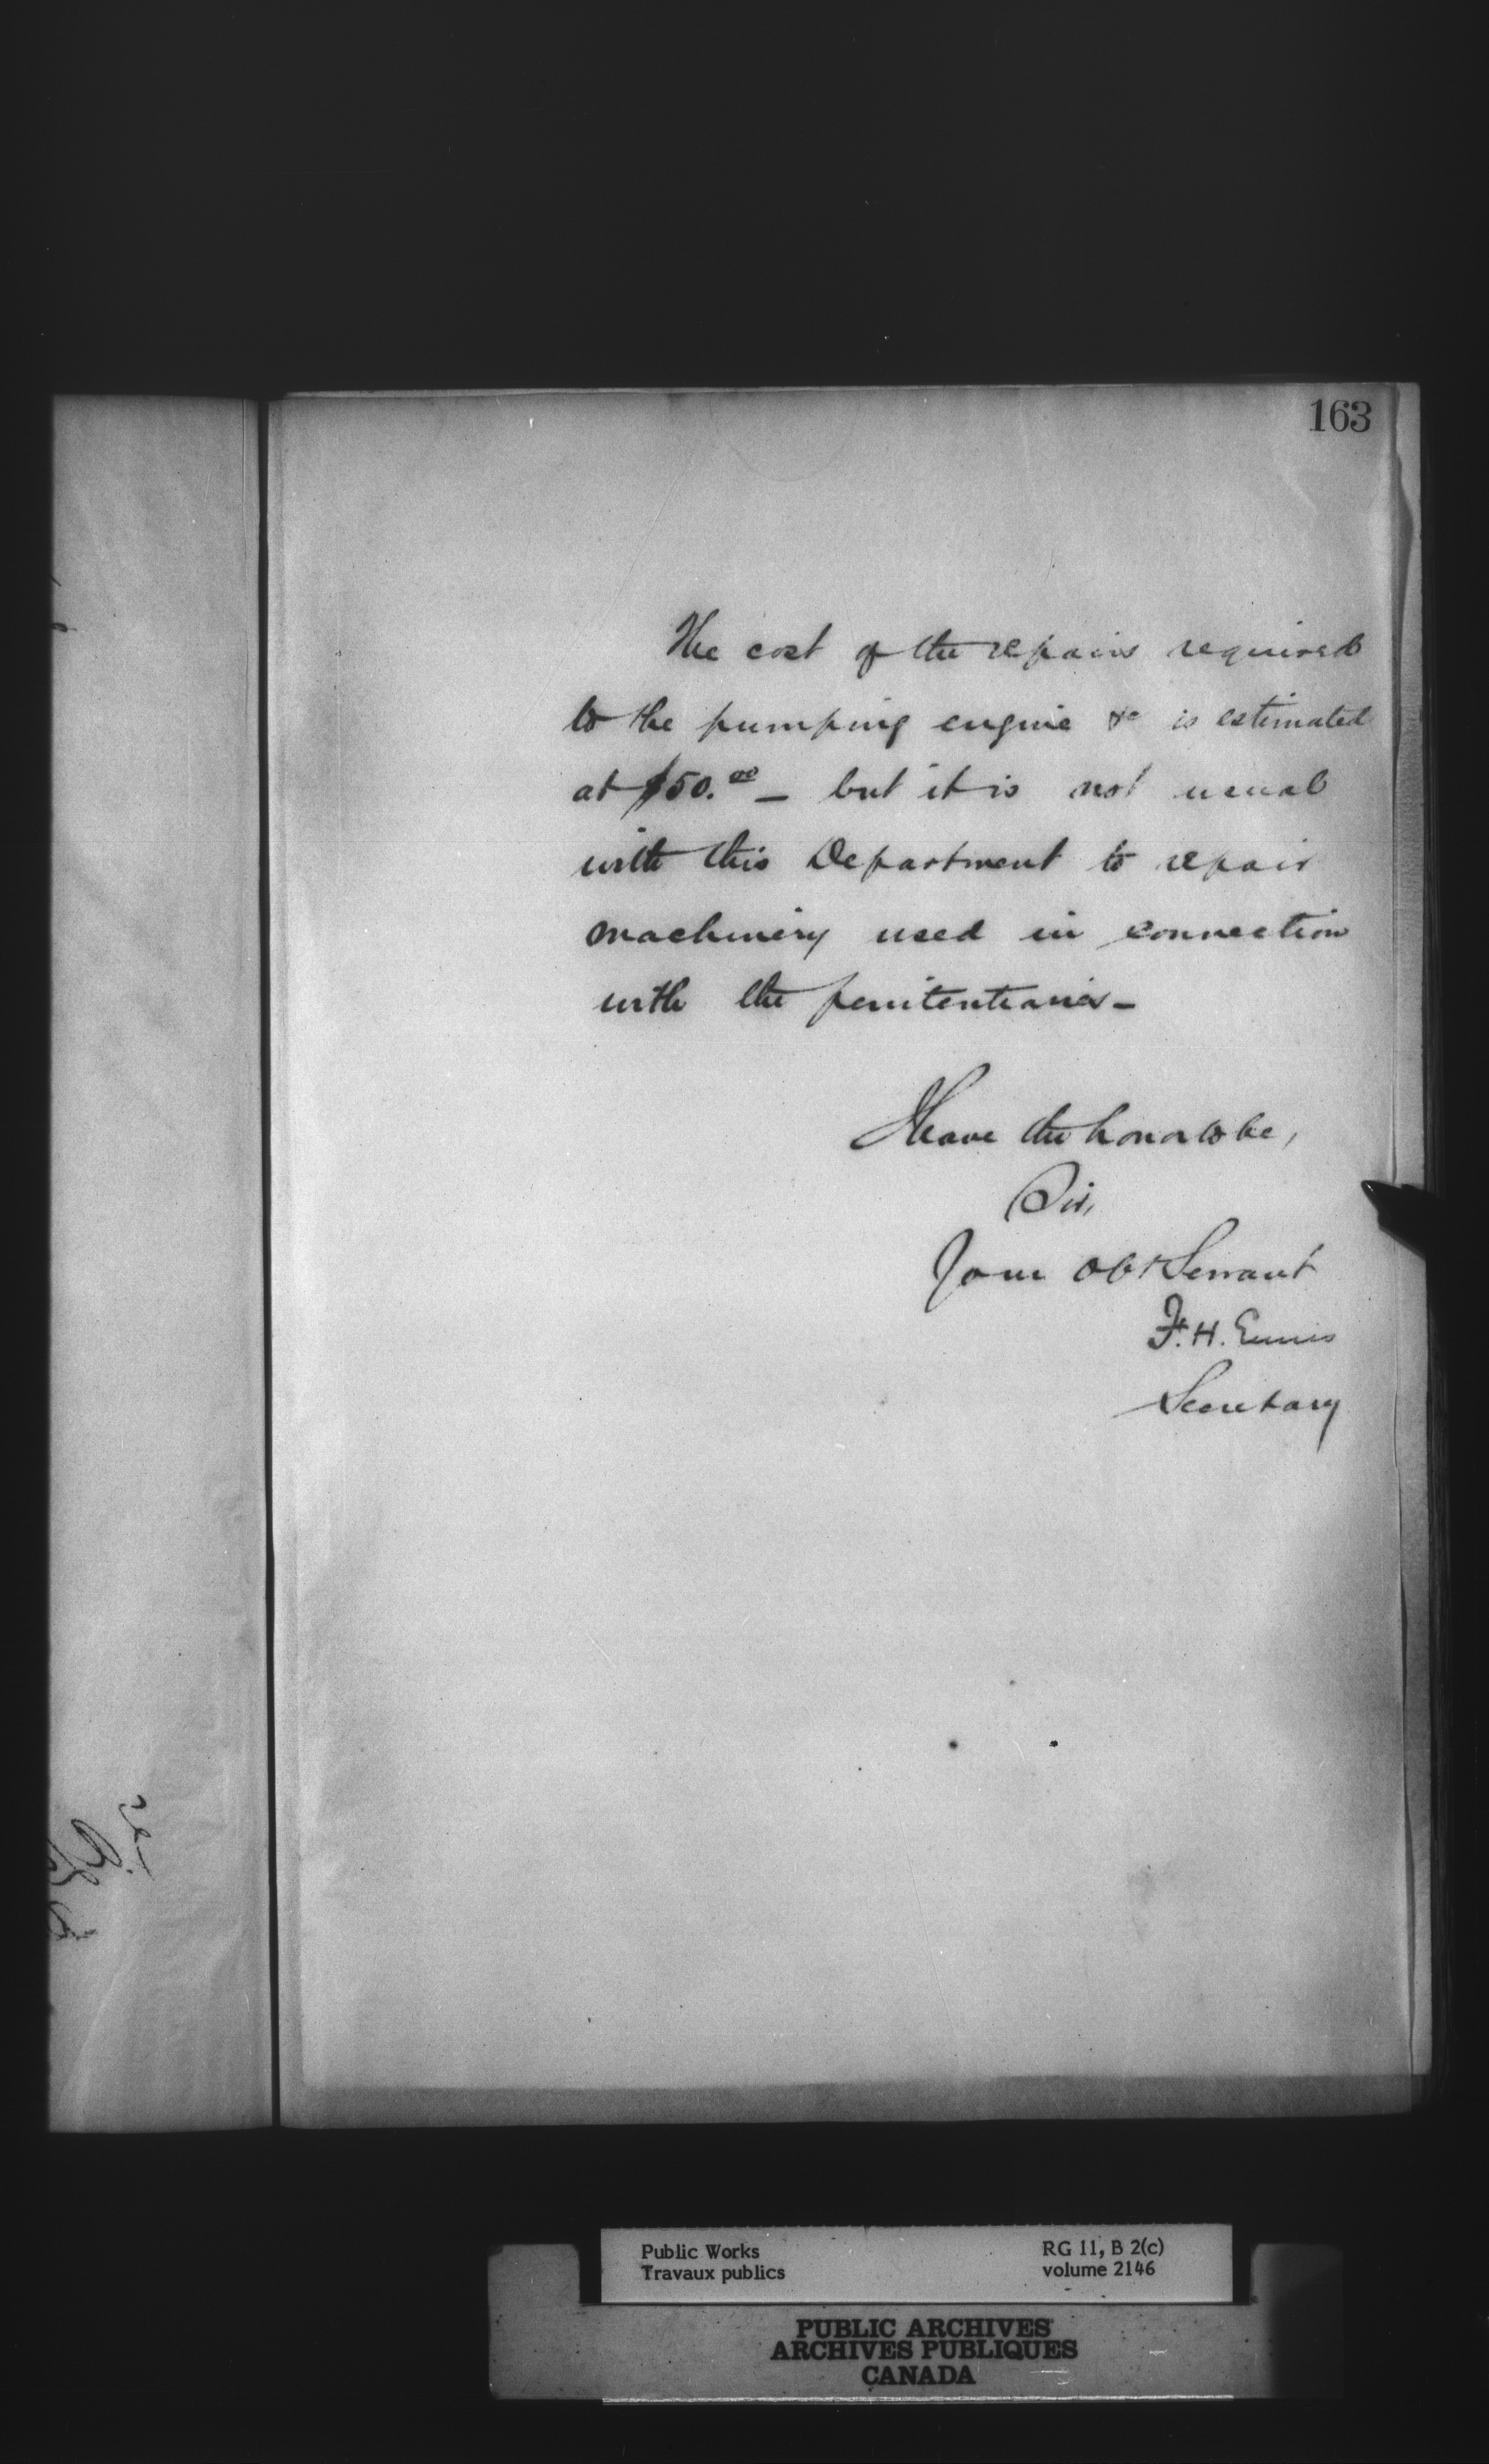 163
The cost of the repairs required
to the pumping engine &c is estimated
at $50.00 — but it is not usual
with this Department to repair
machinery used in connection
with the penitentiaries —
I have the honor to be,
Sir,
Your Obt Servant
F. H. Ennis
Secretary
Public Works
Travaux publics
RG 11, B 2(c)
volume 2146
PUBLIC ARCHIVES
ARCHIVES PUBLIQUES
CANADA